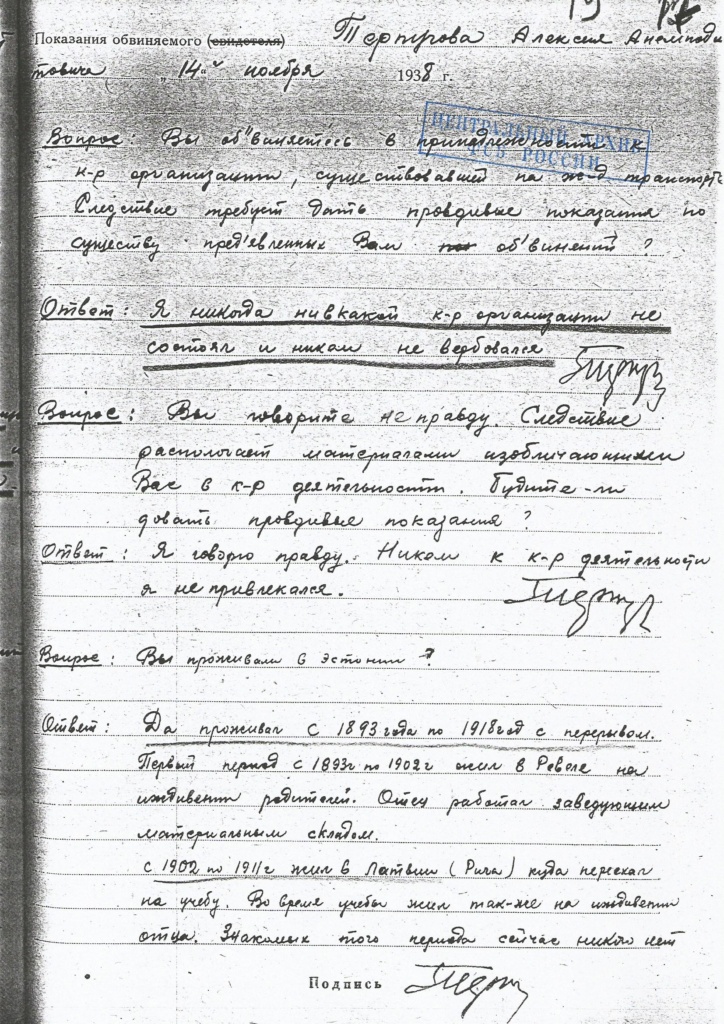 Показания обвиняемого (свидетеля) Терпугова Алексея Анемподи
товича „14" ноября 1938 г.
ЦЕНТРАЛЬНЫЙ АРХИВ
ФСБ РОССИИ
Вопрос: Вы об"виняетесь в принадлежности к
к-р организации, существовавшей на ж-д транспорте
Следствие требует дать проводивые показания по
существу пред'явленных Вам об'винений?
Ответ: Я никогда нивкакой к-р организации не
состоял и никем не вербовался
Вопрос: Вы говорите неправду. Следствие
распологает материалами изобличающими
Вас в к-р деятельности. Будите-ли
довать проводивые показания?
Ответ: Я говорю правду. Никем к к-р деятельности
я не привлекался.
Вопрос: Вы проживали в Эстонии?
Ответ: Да проживал с 1893 года по 1918 год с перерывом.
Первый период с 1893г по 1902г жил в Ревеле на
иждивении родителей. Отец работал заведующим
материальным складом.
с 1902 по 1911г жил в Латвии (Рига) куда переехал
на учебу. Во время учебы жил так-же на иждивении
отца. Знакомых того периода сейчас никого нет
Подпись